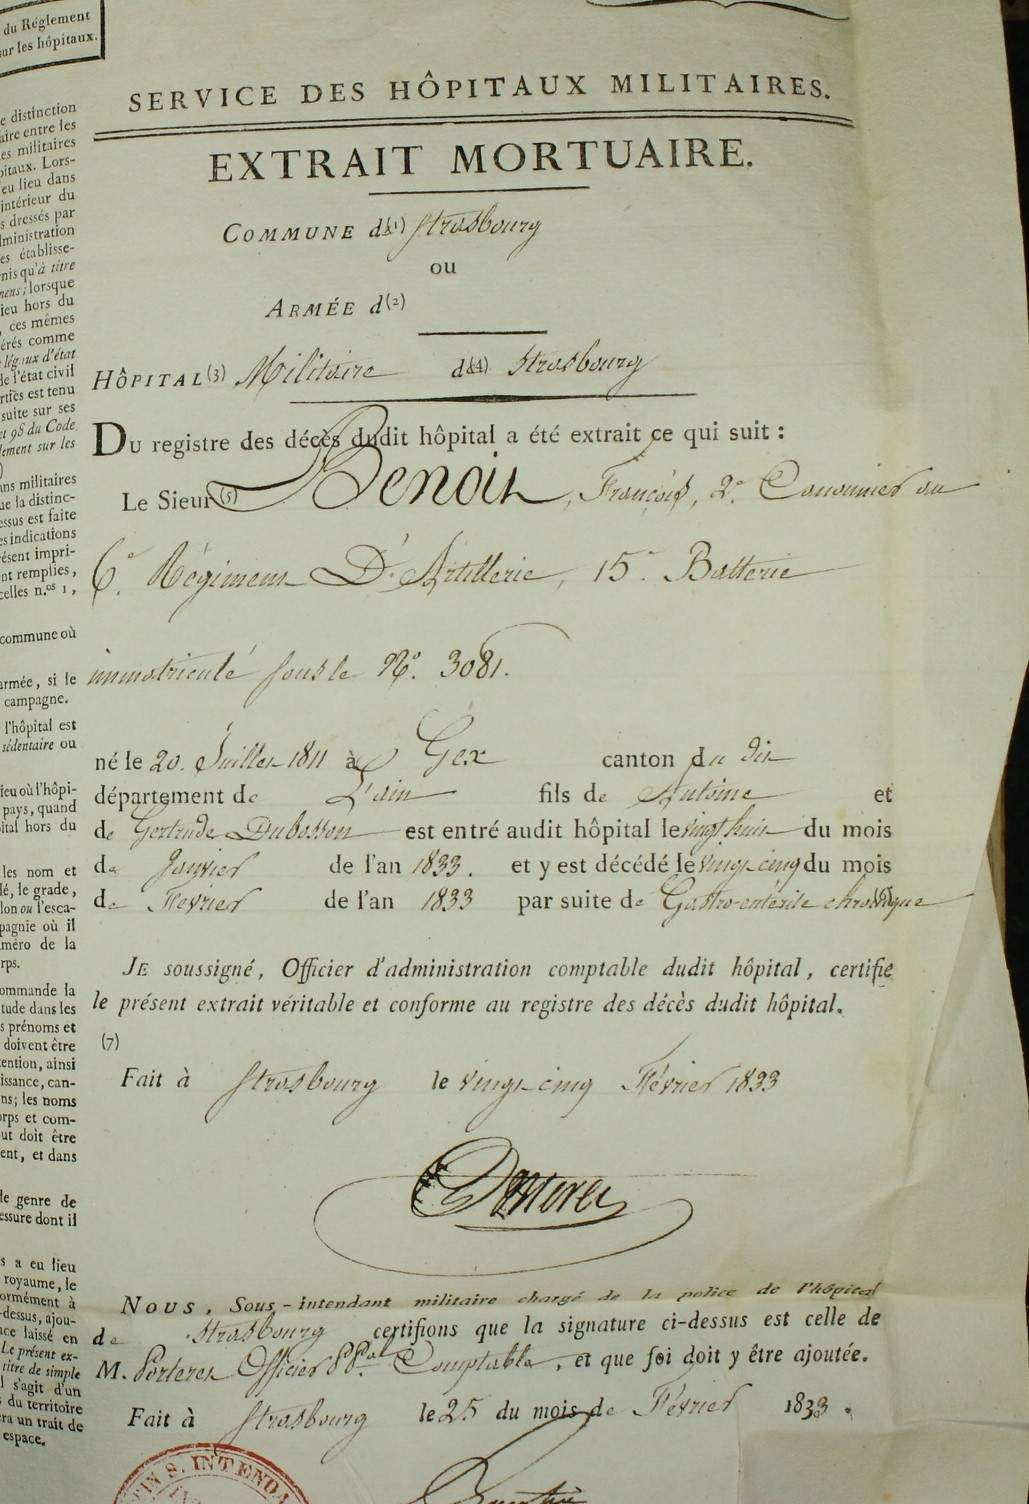 du Réglement
sur les hôpitaux.
e distinction
aire entre les
es militaires
pitaux. Lors-
eu lieu dans
intérieur du
s dressés par
dministration
es établisse-
nis qu'à titre
mens; lorsque
lieu hors du
, ces mêmes
érés comme
légaux d'état
de l'état civil
rties est tenu
suite sur ses
et 98 du Code
lement sur les
)
ans militaires
ue la distinc-
essus est faite
es indications
résent impri-
nt remplies,
celles n.os 1,
commune où
armée, si le
campagne.
l'hôpital est
sédentaire ou
lieu où l'hôpi-
pays, quand
pital hors du
les nom et
lé, le grade,
lon ou l'esca-
pagnie où il
uméro de la
rps.
ommande la
tude dans les
s prénoms et
doivent être
tention, ainsi
issance, can-
ns; les noms
orps et com-
ut doit être
ent, et dans
le genre de
essure dont il
s a eu lieu
royaume, le
ormément à
-dessus, ajou-
ace laissé en
Le présent ex-
titre de simple
l s'agit d'un
du territoire
era un trait de
espace.
SERVICE DES HÔPITAUX MILITAIRES.
EXTRAIT MORTUAIRE.
COMMUNE d(1) Strasbourg
ou
ARMÉE d(2)
HÔPITAL(3) Militaire d(4) Strasbourg
Du registre des décès dudit hôpital a été extrait ce qui suit :
Le Sieur(5) Benoit, François, 2e. Canonnier au
6e. Régiment D'Artillerie, 15e. Batterie
immatriculé sous le No. 3081.
né le 20. Juillet 1811 à Gex canton du dit
département de L'ain fils de Antoine et
de Gertrude Dubosson est entré audit hôpital le vingt huit du mois
de Janvier de l'an 1833. et y est décédé le vingt cinq du mois
de Février de l'an 1833 par suite de Gastro-entérite chronique (6)
JE soussigné, Officier d'administration comptable dudit hôpital, certifie
le présent extrait véritable et conforme au registre des décès dudit hôpital.
(7)
Fait à Strasbourg le vingt cinq Février 1833
NOUS, Sous-intendant militaire chargé de la police de l'hôpital
de Strasbourg certifions que la signature ci-dessus est celle de
M. Porteret Officier Pp.al Comptable, et que foi doit y être ajoutée.
Fait à Strasbourg le 25 du mois de Février 1833.
S. INTENDA